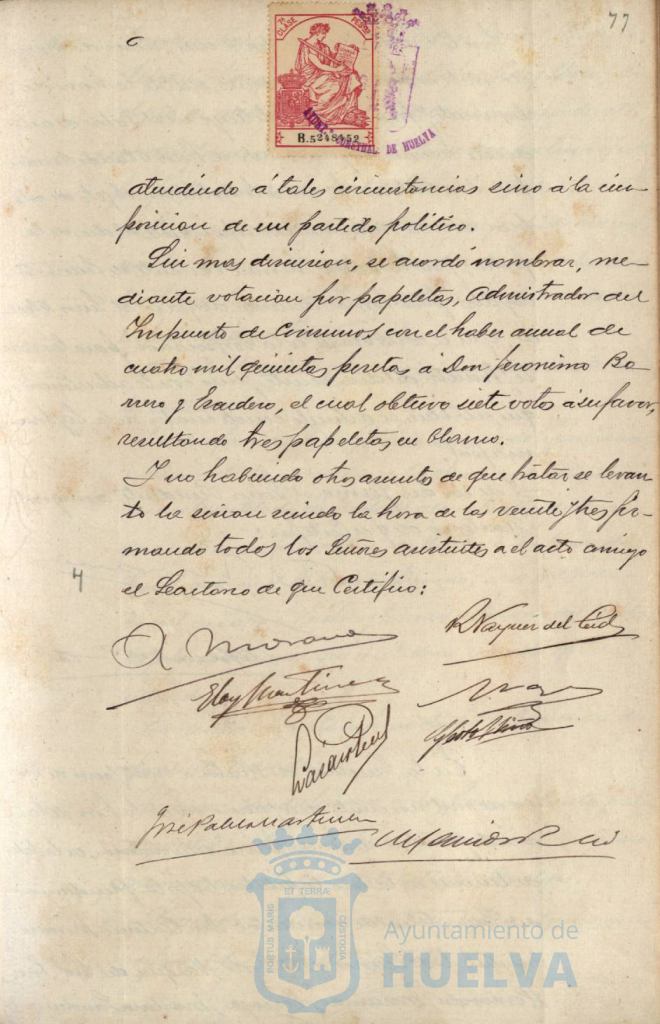 77
7ª CLASE PESETA
B.5248452
AYUNT. CONSTNAL. DE HUELVA
atendiendo á tales circunstancias sino á la im
posicion de un partido politico.
Sin mas discusion, se acordó nombrar, me
diante votacion por papeletas, Administrador del
Impuesto de Consumos con el haber anual de
cuatro mil quinientas pesetas á Don Jeronimo Ba
rrero y Escudero, el cual obtuvo siete votos á su favor,
resultando tres papeletas en blanco.
Y no habiendo otros asuntos de que tratar se levan
to la sesion siendo la hora de las veinte y tres fir
mando todos los Señores asistentes a el acto conmigo
el Secretario de que Certifico:
4
A Moreno
R Vazquez del Cid
Eloy Martinez
José Pablo Martinez
ET TERRÆ
PORTUS MARIS
CUSTODIA
Ayuntamiento de
HUELVA